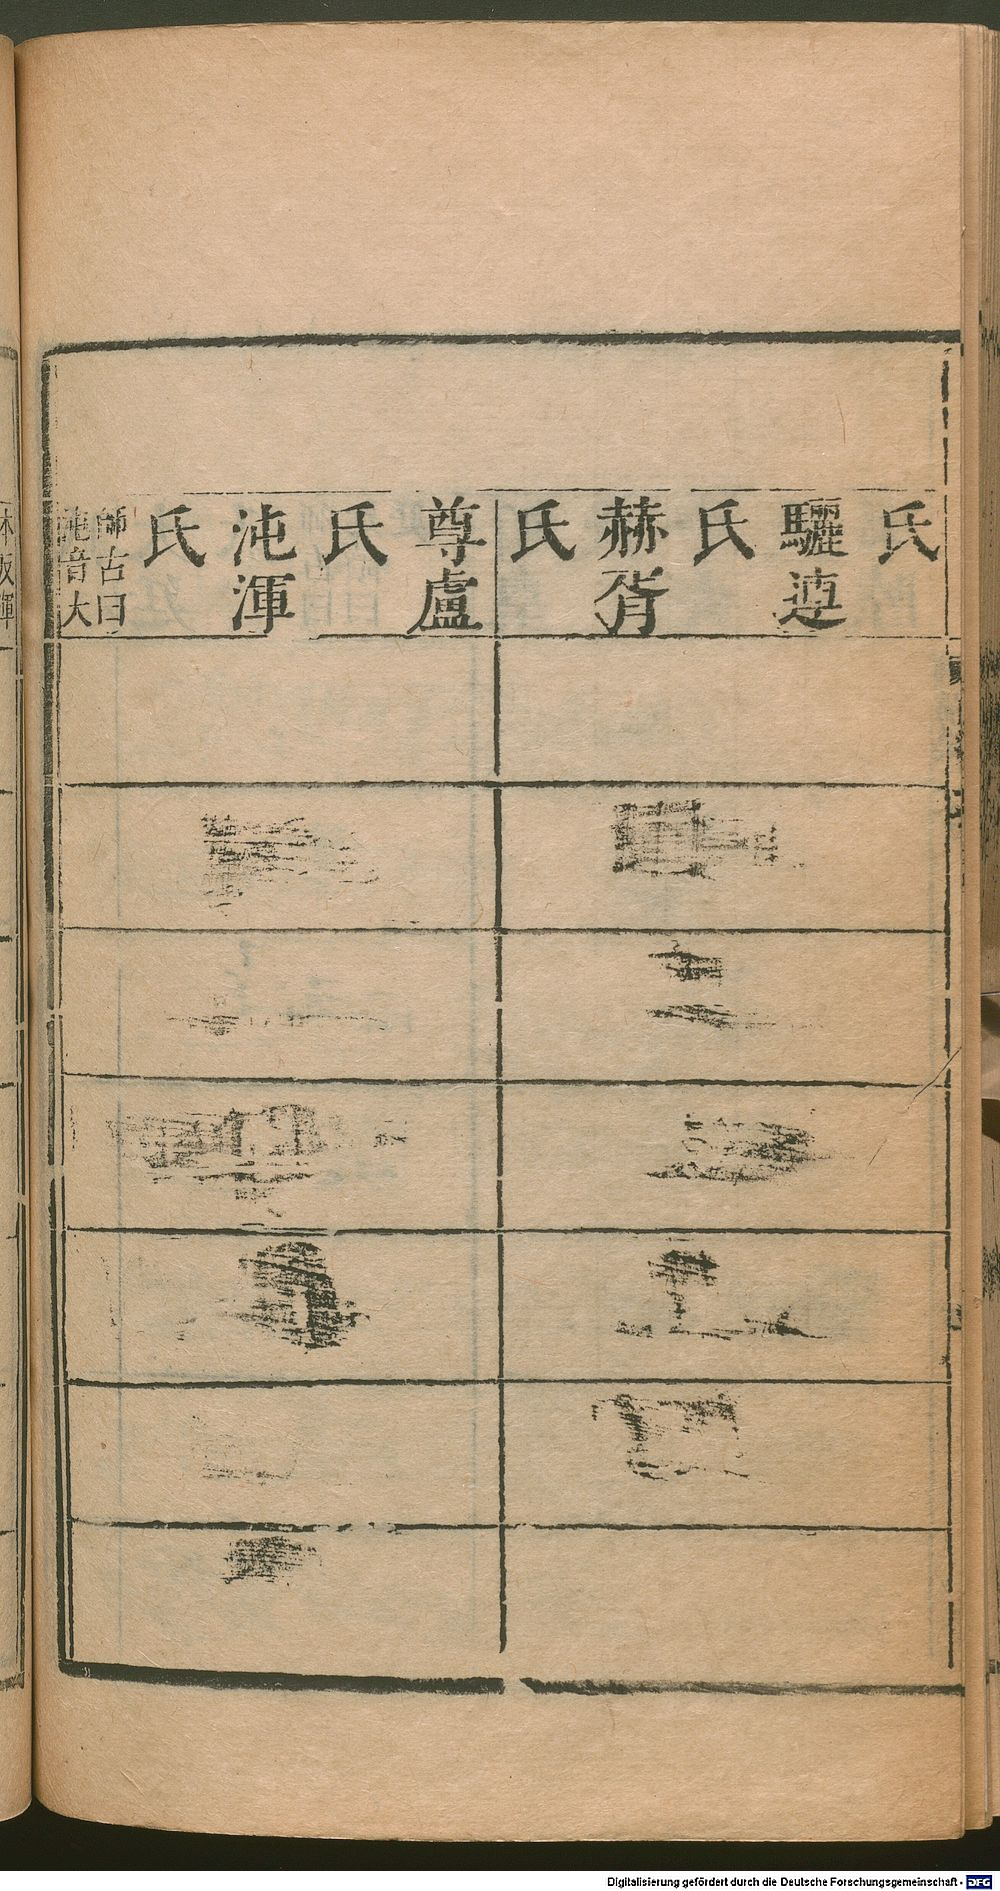 氏
驪連
氏
赫胥
氏
尊盧
氏
沌渾
氏
師古曰
沌音大
Digitalisierung gefördert durch die Deutsche Forschungsgemeinschaft - DFG